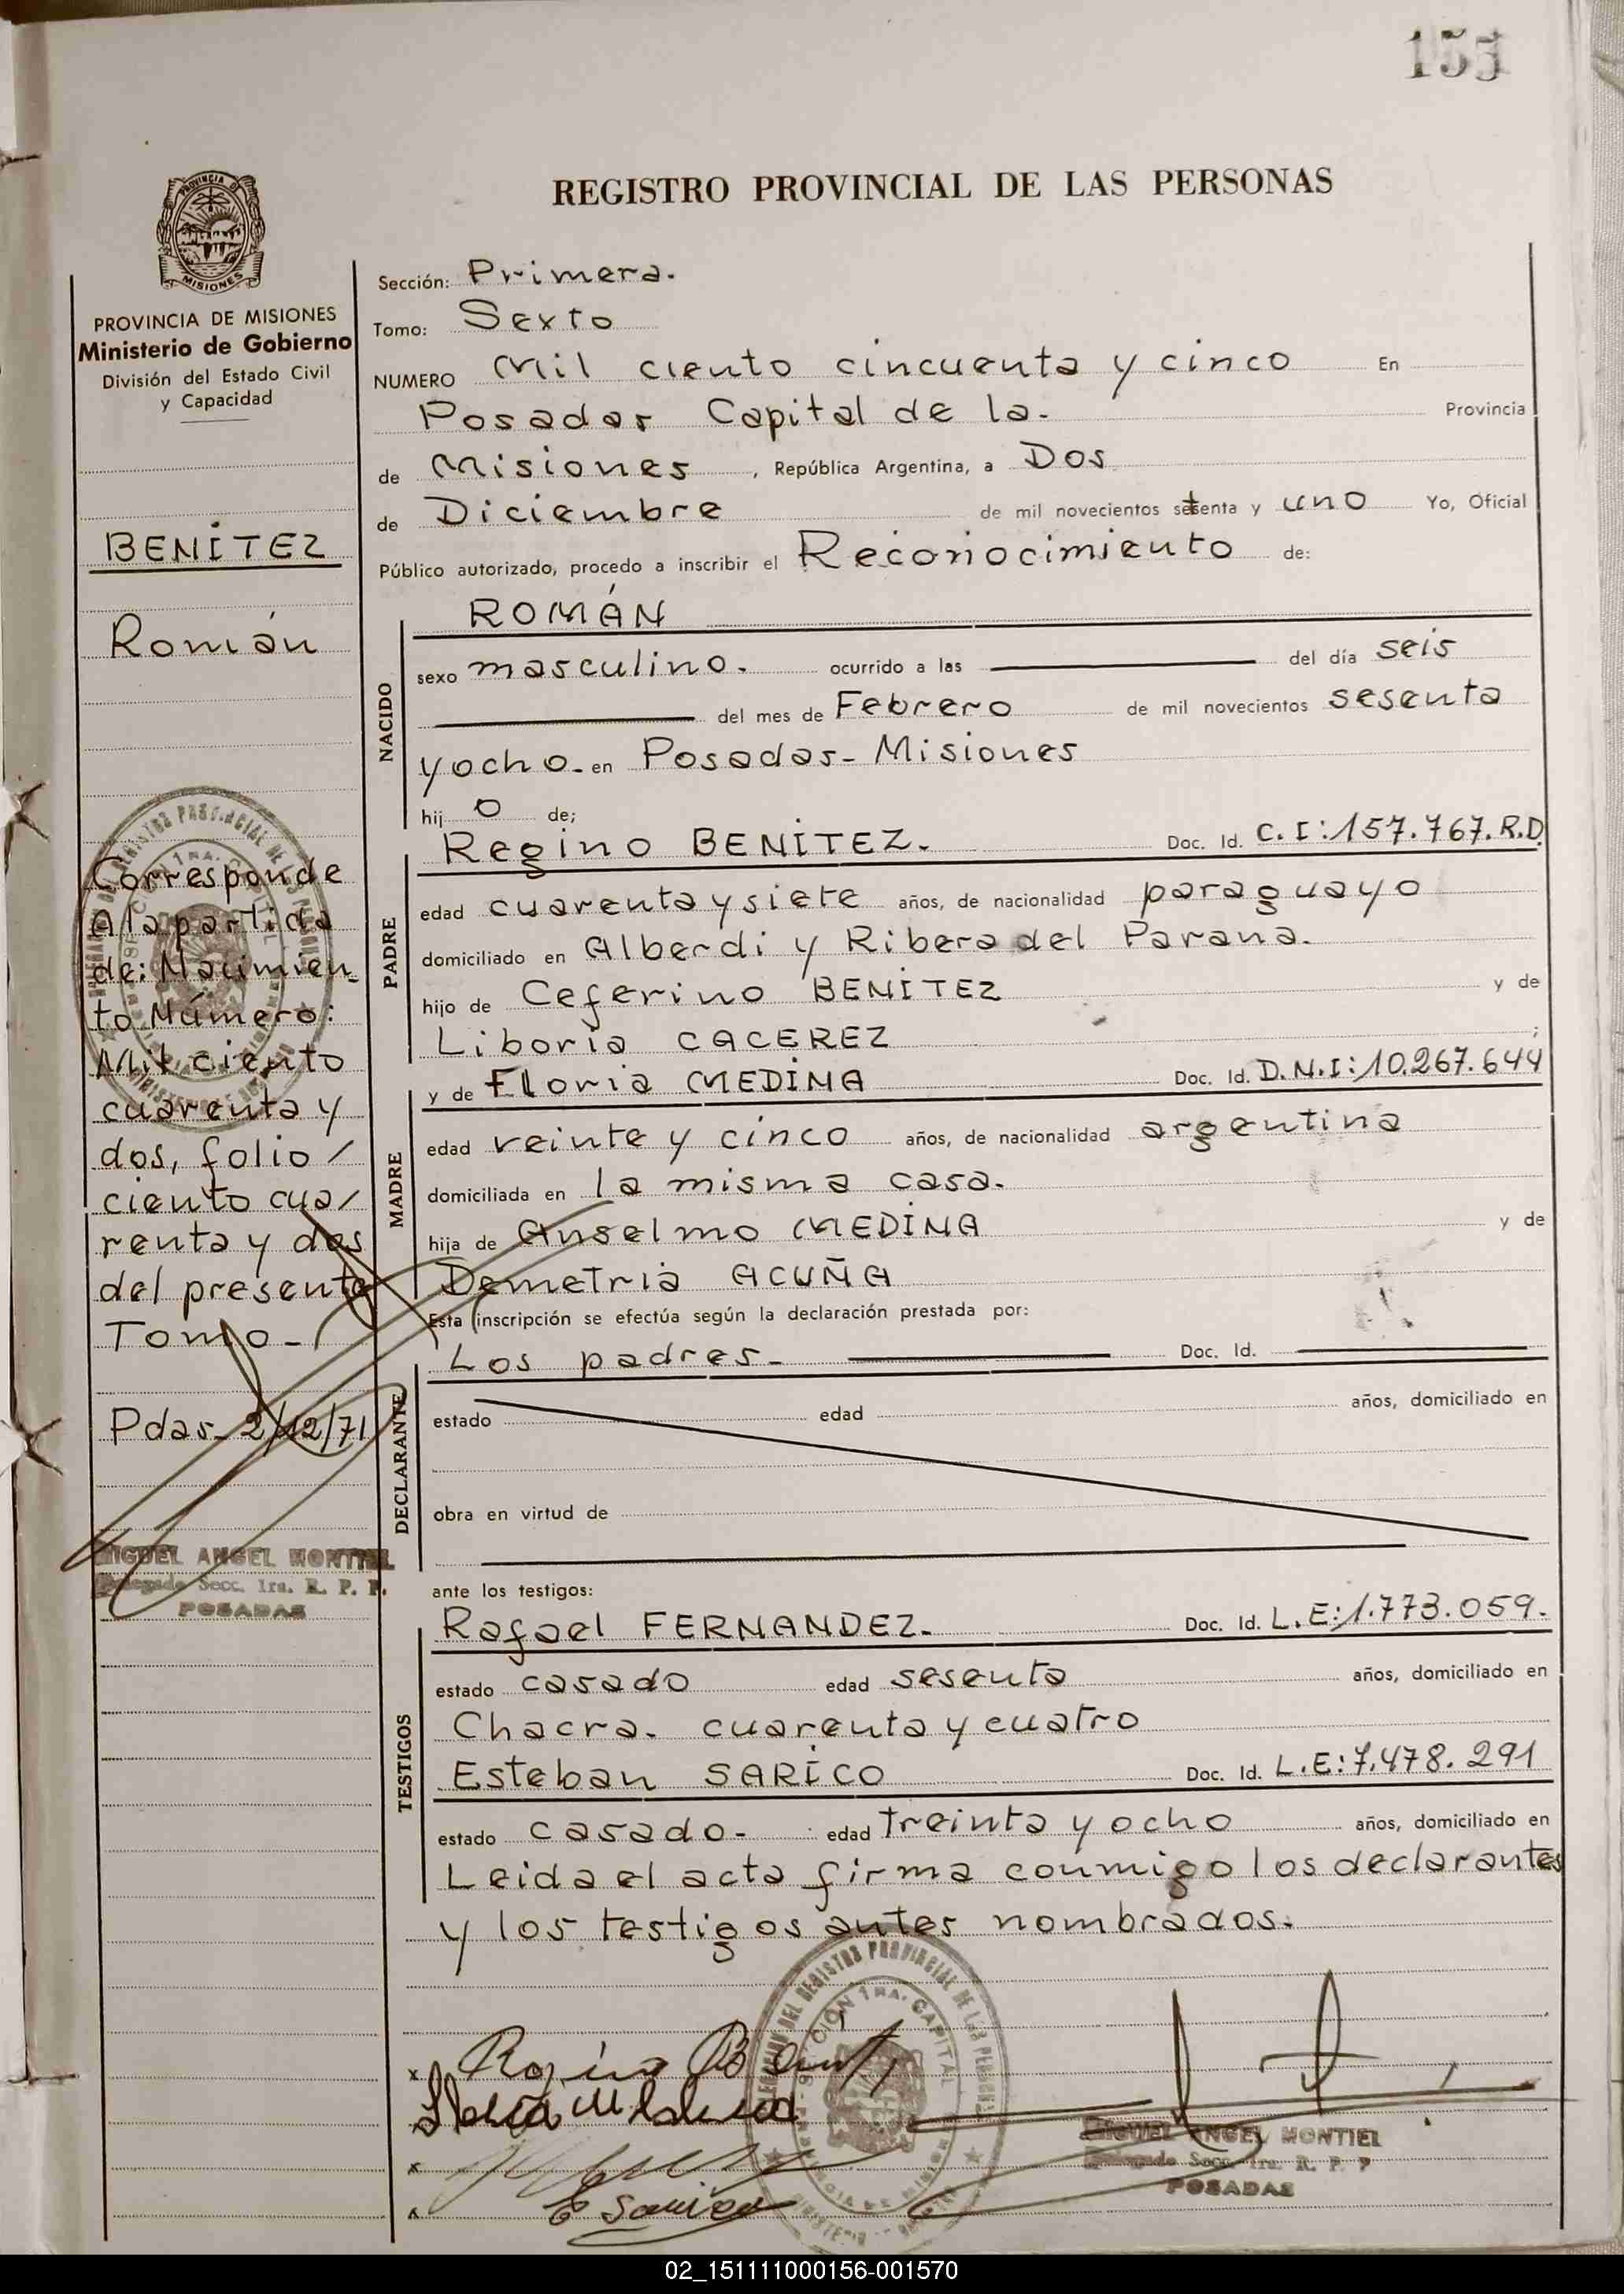 155
REGISTRO PROVINCIAL DE LAS PERSONAS
PROVINCIA DE
MISIONES
PROVINCIA DE MISIONES
Ministerio de Gobierno
División del Estado Civil
y Capacidad
BENÍTEZ
Román
Corresponde
A la partida
de: Nacimien_
to Número:
Mil ciento
cuarenta y
dos, folio/
ciento cua/
renta y dos
del presente
Tomo_
Pdas_ 2/12/71
MIGUEL ANGEL MONTIEL
Delegado Secc. 1ra. R. P. P.
POSADAS
Sección: Primera.
Tomo: Sexto
NUMERO Mil ciento cincuenta y cinco En
Posadas Capital de la- Provincia
de Misiones , República Argentina, a Dos
de Diciembre de mil novecientos setenta y uno Yo, Oficial
Público autorizado, procedo a inscribir el Reconocimiento de:
ROMÁN
NACIDO
sexo masculino. ocurrido a las del día seis
del mes de Febrero de mil novecientos sesenta
y ocho_ en Posadas_ Misiones
hij o de;
Regino BENÍTEZ. Doc. Id. C.I:157.767.R.D
PADRE
edad cuarenta y siete años, de nacionalidad paraguayo
domiciliado en Alberdi y Ribera del Parana.
hijo de Ceferino BENÍTEZ y de
Liboria CACEREZ ;
y de Floria MEDINA Doc. Id. D.N.I:10.267.644
MADRE
edad veinte y cinco años, de nacionalidad argentina
domiciliada en la misma casa.
hija de Anselmo MEDÍNA y de
Demetria ACUÑA
Esta inscripción se efectúa según la declaración prestada por:
Los padres_ Doc. Id.
DECLARANTE
estado edad años, domiciliado en
obra en virtud de
ante los testigos:
Rafael FERNANDEZ. Doc. Id. L.E:1.773.059.
TESTIGOS
estado casado edad sesenta años, domiciliado en
Chacra. cuarenta y cuatro
Esteban SARÍCO Doc. Id. L.E:7.478.291
estado casado- edad treinta y ocho años, domiciliado en
Leida el acta firma conmigo los declarantes
y los testigos antes nombrados.
MIGUEL ANGEL MONTIEL
Delegado Secc. 1ra. R. P. P
POSADAS
02_151111000156-001570